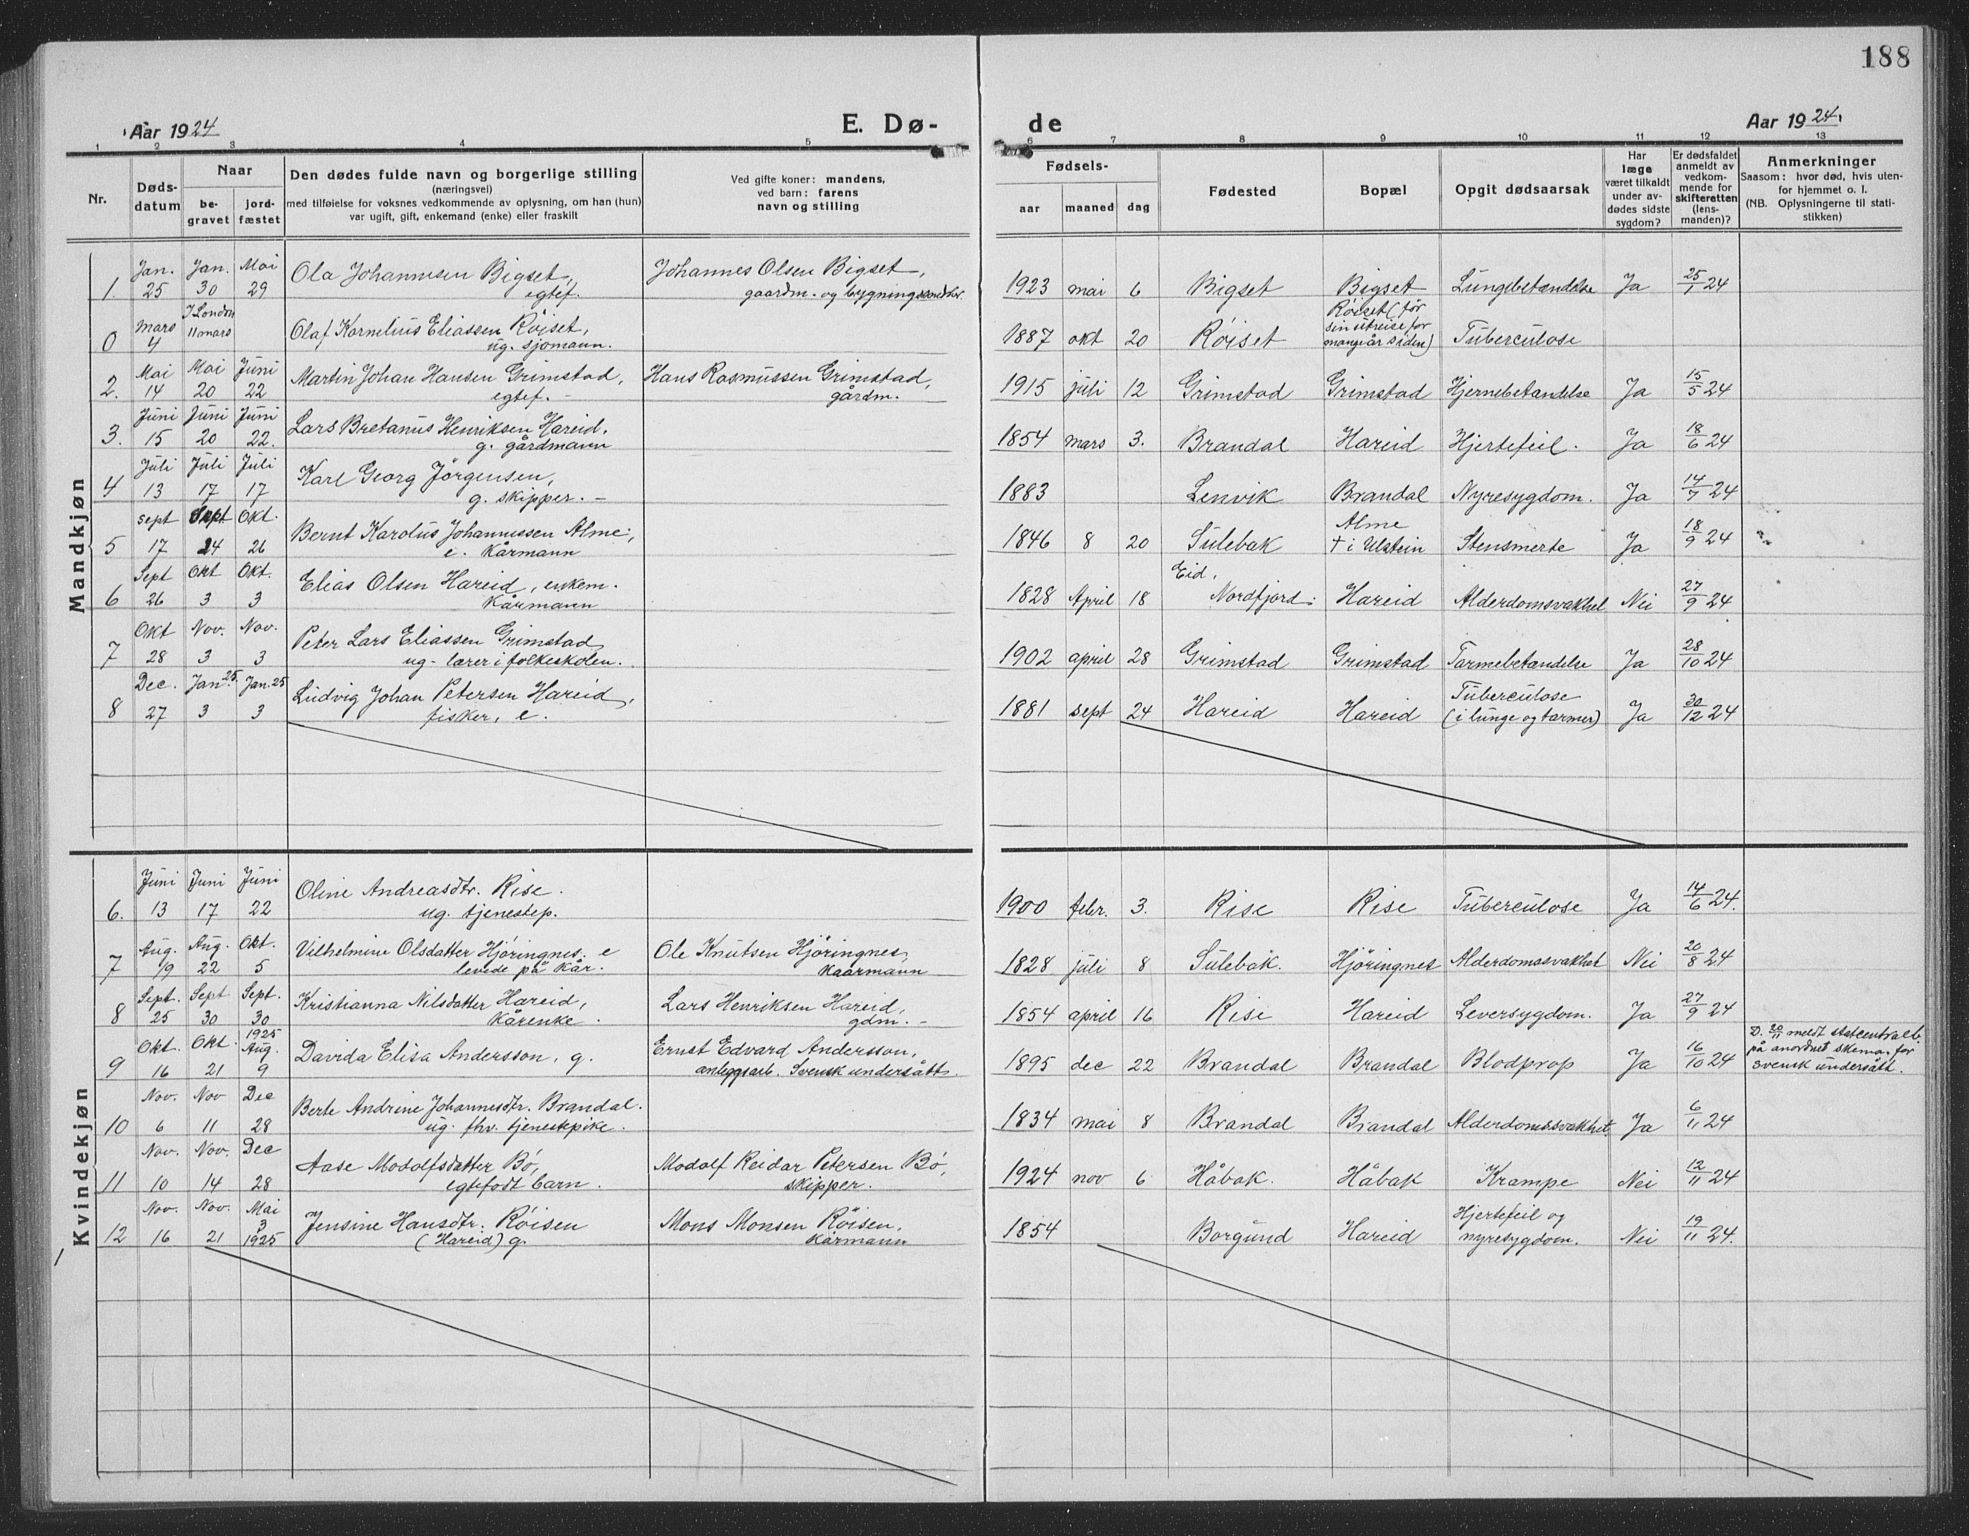 188
Aar 1924
E. Dø-
de
Aar 1924.
1 2 3 4 5 6 7 8 9 10 11 12 13
Nr.
Døds-
datum
Naar
be-
gravet
jord-
fæstet
Den dødes fulde navn og borgerlige stilling
(næringsvei)
med tilføielse for voksnes vedkommende av oplysning, om han (hun)
var ugift, gift, enkemand (enke) eller fraskilt
Ved gifte koner: mandens,
ved barn: farens
navn og stilling
Fødsels-
aar maaned dag
Fødested
Bopæl
Opgit dødsaarsak
Har
læge
været tilkaldt
under av-
dødes sidste
sygdom?
Er dødsfaldet
anmeldt av
vedkom-
mende for
skifteretten
(lens-
manden)?
Anmerkninger
Saasom: hvor død, hvis uten-
for hjemmet o. l.
(NB. Oplysningerne til stati-
stikken)
Mandkjøn
Jan. Jan. Mai Ola Johannesen Bigset, Johannes Olsen Bigset,
1. 25 30 29 egtef. gaardm. og bygningssnekker. 1923 mai 6 Bigset Bigset Lungebetændelse Ja 25/1 24
Mars I London Olaf Kornelius Eliassen Röiset, Röiset (før
0 4 11 mars ug. sjömann. 1887 okt 20 Röiset sin utreise for mange år siden) Tuberculose
Mai Mai Juni Martin Johan Hansen Grimstad, Hans Rasmussen Grimstad,
2. 14 20 22 egtef. - gårdm. 1915 juli 12 Grimstad Grimstad Hjernebetændelse Ja 15/5 24
Juni Juni Juni Lars Bretanus Henriksen Hareid,
3. 15 20 22. g. gårdmann 1854 mars 3. Brandal Hareid Hjertefeil. Ja 18/6 24
Juli Juli Juli Karl Georg Jörgensen,
4 13 17 17 g. skipper. - 1883 Lenvik Brandal Nyresygdom. Ja 14/7 24
sept Sept Okt. Bernt Karolus Johannessen Alme, Alme
5 17 24 26 e. Kårmann 1846 8 20 Sulebak + i Ulstein Stensmerte Ja 18/9 24
Sept Okt Okt. Elias Olsen Hareid, enkem. Eid,
6 26 3 3 Kårmann 1828 April 18 Nordfjord. Hareid Alderdomsvakhet Nei 27/9 24
Okt Nov. Nov. Peter Lars Eliassen Grimstad
7 28 3 3 ug. lærer i folkeskolen. 1902 april 28 Grimstad Grimstad Tarmebetændelse Ja 28/10 24
Dec. Jan. 25 Jan. 25 Ludvig Johan Petersen Hareid, Tuberculose
8 27 3 3 fisker, e. 1881 sept 24 Hareid Hareid (i lunge og tarmer) Ja 30/12 24
Kvindekjøn
Juni Juni Juni Oline Andreasdtr. Rise.
6. 13 17 22 ug. tjenestep. 1900 febr. 3. Rise Rise Tuberculose Ja 14/6 24.
Aug. Aug. Okt. Vilhelmine Olsdatter Hjöringnes. e Ole Knutsen Hjöringnes,
7 19 22 5 levede på kår. kaarmann 1828 juli 8 Sulebak. Hjöringnes Alderdomssvakhet Nei 20/8 24
Sept. Sept Sept. Kristianna Nilsdatter Hareid, Lars Henriksen Hareid,
8 25 30 30 Kårenke. gdm. - 1854 april 16 Rise Hareid Leversygdom. Ja 27/9 24
Okt. Okt. 1925 Aug. Davida Elisa Andersson, g. Ernst Edvard Andersson, D. 20/11 meldt statcentralb.
9 16 21 9 anleggsarb. Svensk undersått. 1895 dec 22 Brandal Brandal Blodprop Ja 16/10 24 på anordnet skema, for
svensk undersått.
Nov. Nov Dec Berte Andrine Johannesdtr. Brandal.
10 6 11 28 ug. fhv. tjenestepike. 1834 mai 8 Brandal Brandal Alderdomssvakhet. Ja 6/11 24
Nov. Nov. Dec Aase Modolfsdatter Bö, Modolf Reidar Petersen Bö,
11 10 14 28 egtefødt barn. skipper. 1924 nov 6 Håbak. Håbak Krampe Nei 12/11 24
Nov. Nov. Mai Jensine Hansdtr. Röisen Mons Monsen Röisen, Hjertefeil og
12 16 21 3 1925 (Hareid) g. Kårmann 1854 Borgund Hareid nyresygdom. Nei 19/11 24.